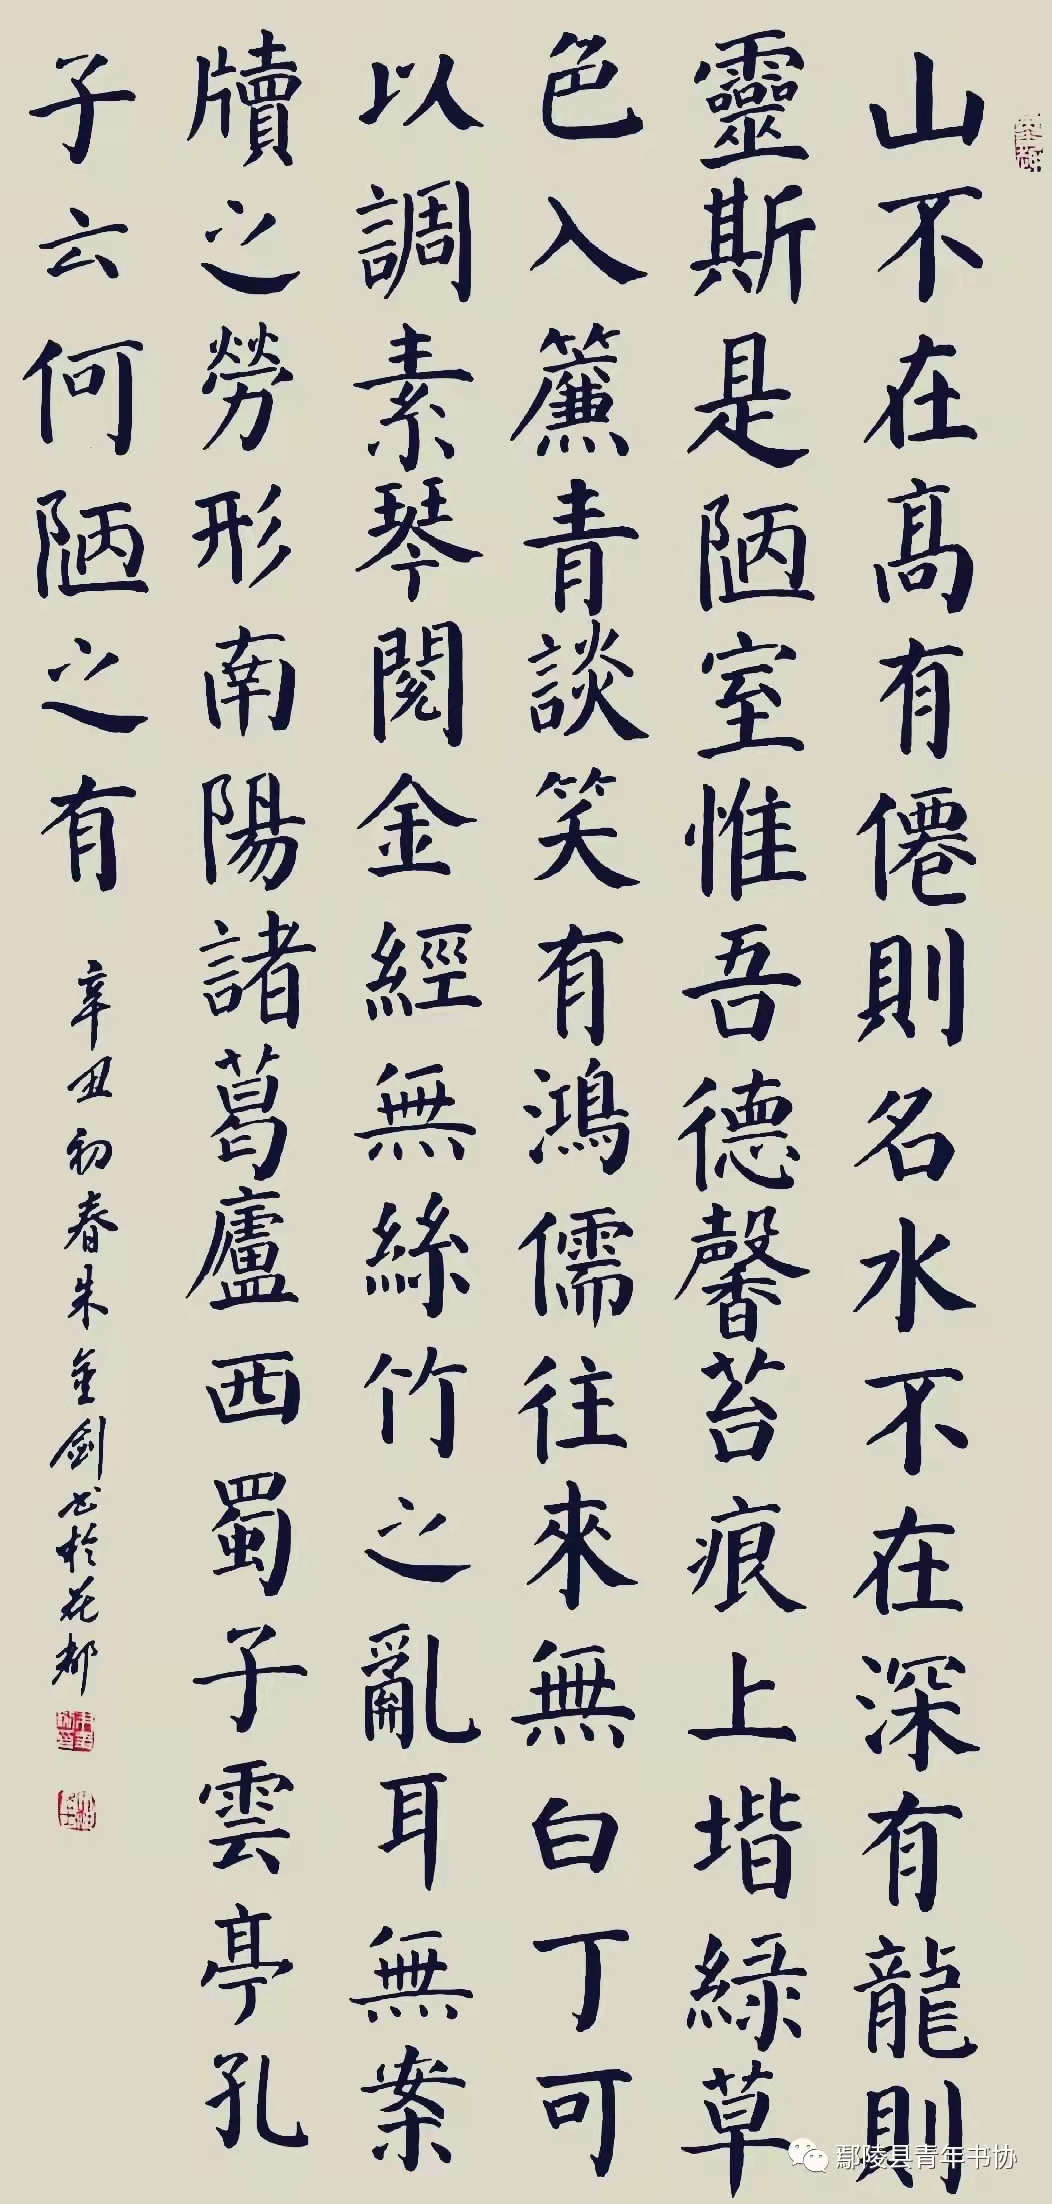 山不在高有僊則名水不在深有龍則
靈斯是陋室惟吾德馨苔痕上堦綠草
色入簾青談笑有鴻儒往來無白丁可
以調素琴閱金經無絲竹之亂耳無案
牘之勞形南陽諸葛廬西蜀子雲亭孔
子云何陋之有
辛丑初春朱金劍书於花都
鄢陵县青年书协